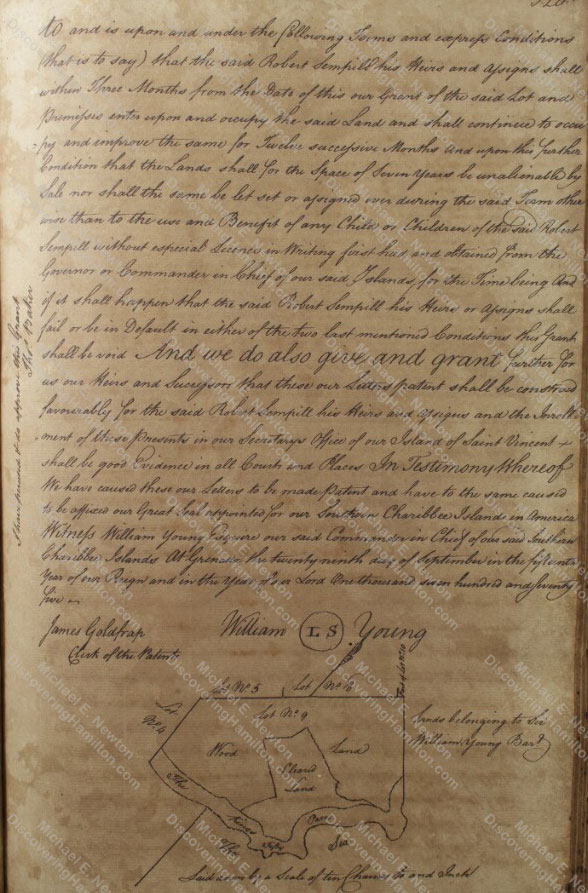 to and is upon and under the following Terms and express Conditions
(that is to say) that the said Robert Sempill his Heirs and Assigns shall
within Three Months from the Date of this our Grant of the said Lot and
Premisses enter upon and occupy the said Land and shall continue to occu
py and improve the same for Twelve successive Months And upon this further
Condition that the Lands shall for the Space of Seven Years be unalienable by
Sale nor shall the same be let set or assigned over during the said Term other
wise than to the use and Benefit of any Child or Children of the said Robert
Sempill without especial Licence in Writing first had and obtained from the
Governor or Commander in Chief of our said Islands for the Time being And
if it shall happen that the said Robert Sempill his Heirs or Assigns shall
fail or be in Default in either of the two last mentioned Conditions this Grant
shall be void And we do also give and grant further for
us our Heirs and Successors that these our Letters patent shall be construed
favourably for the said Robert Sempill his Heirs and Assigns and the Inroll
ment of these presents in our Secretarys Office of our Island of Saint Vincent
shall be good Evidence in all Courts and Places In Testimony Whereof
We have caused these our Letters to be made Patent and have to the same caused
to be affixed our Great Seal appointed for our Southern Charibbee Islands in America
Witness William Young Esquire our said Commander in Chief of our said Southern
Charibbee Islands At Grenada the twenty ninth day of September in the fifteenth
Year of our Reign and in the Year of our Lord One thousand seven hundred and seventy
five
James Goldfrap
Clerk of the Patents
William L S Young
Lot No. 5
Lot No.
Part of Lot No. 10
Lot
No. 4
Lot No. 9
Wood
Land
Cleared
Land
Lands belonging to Sir
William Young Bart.
The
Three
Chains
The
Sea
Laid down by a Scale of ten Chains to and Inch
the Grant
Tho Baker
Michael E. Newton
DiscoveringHamilton.com